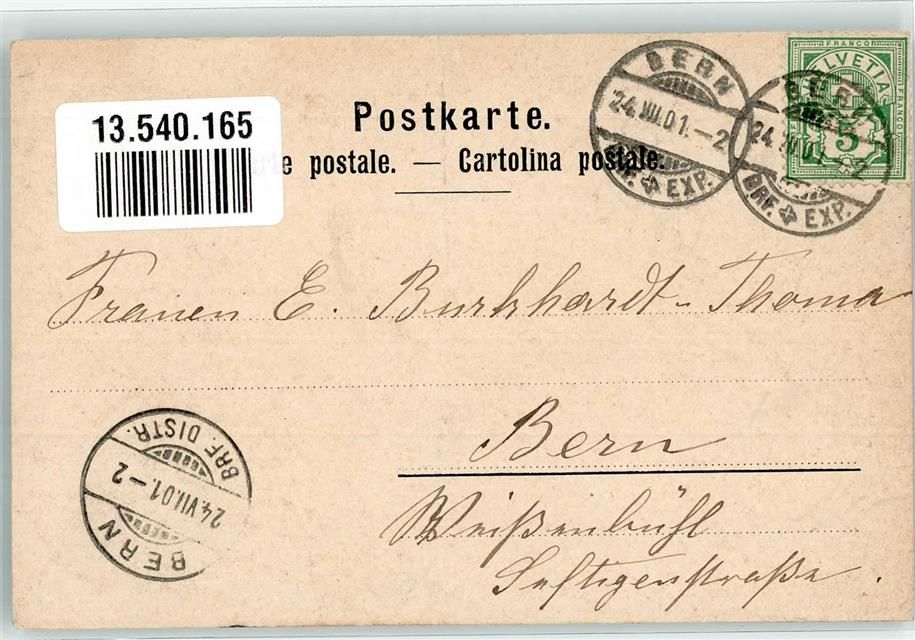 Postkarte.
13.540.165
te postale. — Cartolina postale.
BERN
24.VII.01.–2
EXP.
BERN
24.VII.01
BRF. EXP.
FRANCO
HELVETIA
5
FRANCO
Frauen E. Burkhardt-Thoma
Bern
Weißenbühl
Seftigenstraße.
BRF. DISTR.
24.VII.01.–2
BERN